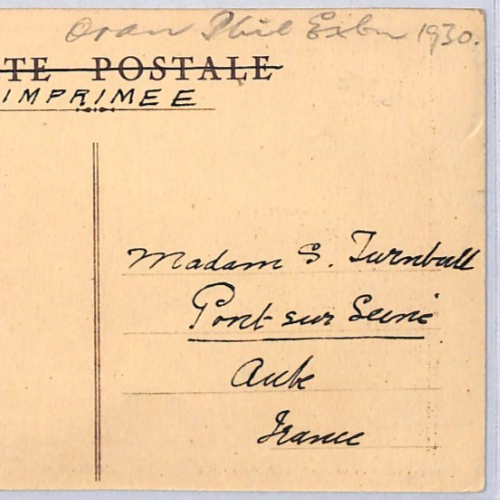 Oran Phil Exbn 1930.
TE POSTALE
IMPRIMEE
Madam S. Turnbull
Pont-sur Seine
Aube
France